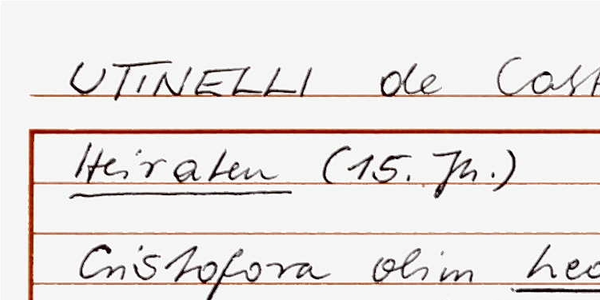 UTINELLI de Cast
Heiraten (15. Jh.)
Cristofora olim Leo